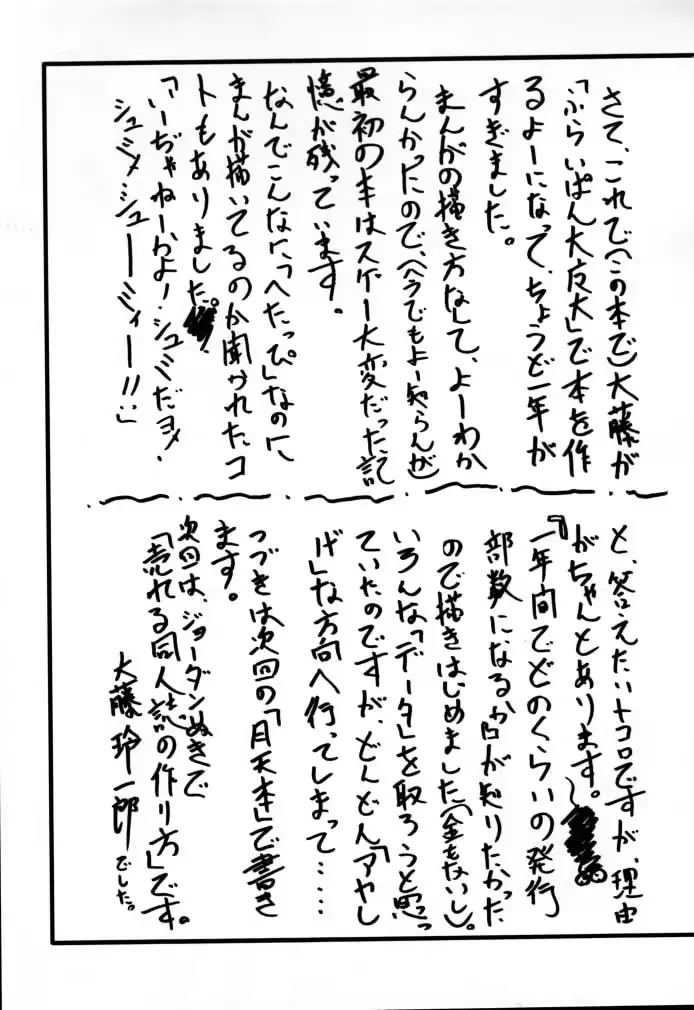 さて、これで(この本で)大藤が
「ふらいぱん大反大」で本を作
るよーになって、ちょうど一年が
すぎました。
まんがの描き方なして、よーわか
らんかったので、(今でもよー知らんが)
最初の本はスゲー大変だった記
憶が残っています。
なんでこんなに、「へたっぴ」なのに、
まんが描いてるのか聞かれたコ
トもありました。
「いーぢゃねーかよ!シュミだヨ!
シュミ!シューミィー!!」
と、答えたいトコロですが、理由
がちゃんとあります。
『一年間でどのくらいの発行
部数になるか』が知りたかった
ので描きはじめました(金もないし)。
いろんな「データ」を取ろうと思っ
ていたのですが、どんどん「アヤし
げ」な方向へ行ってしまって……
つづきは次回の「月天本」で書き
ます。
次回は、ジョーダンぬきで
「売れる同人誌の作り方」です。
大藤玲一郎でした。